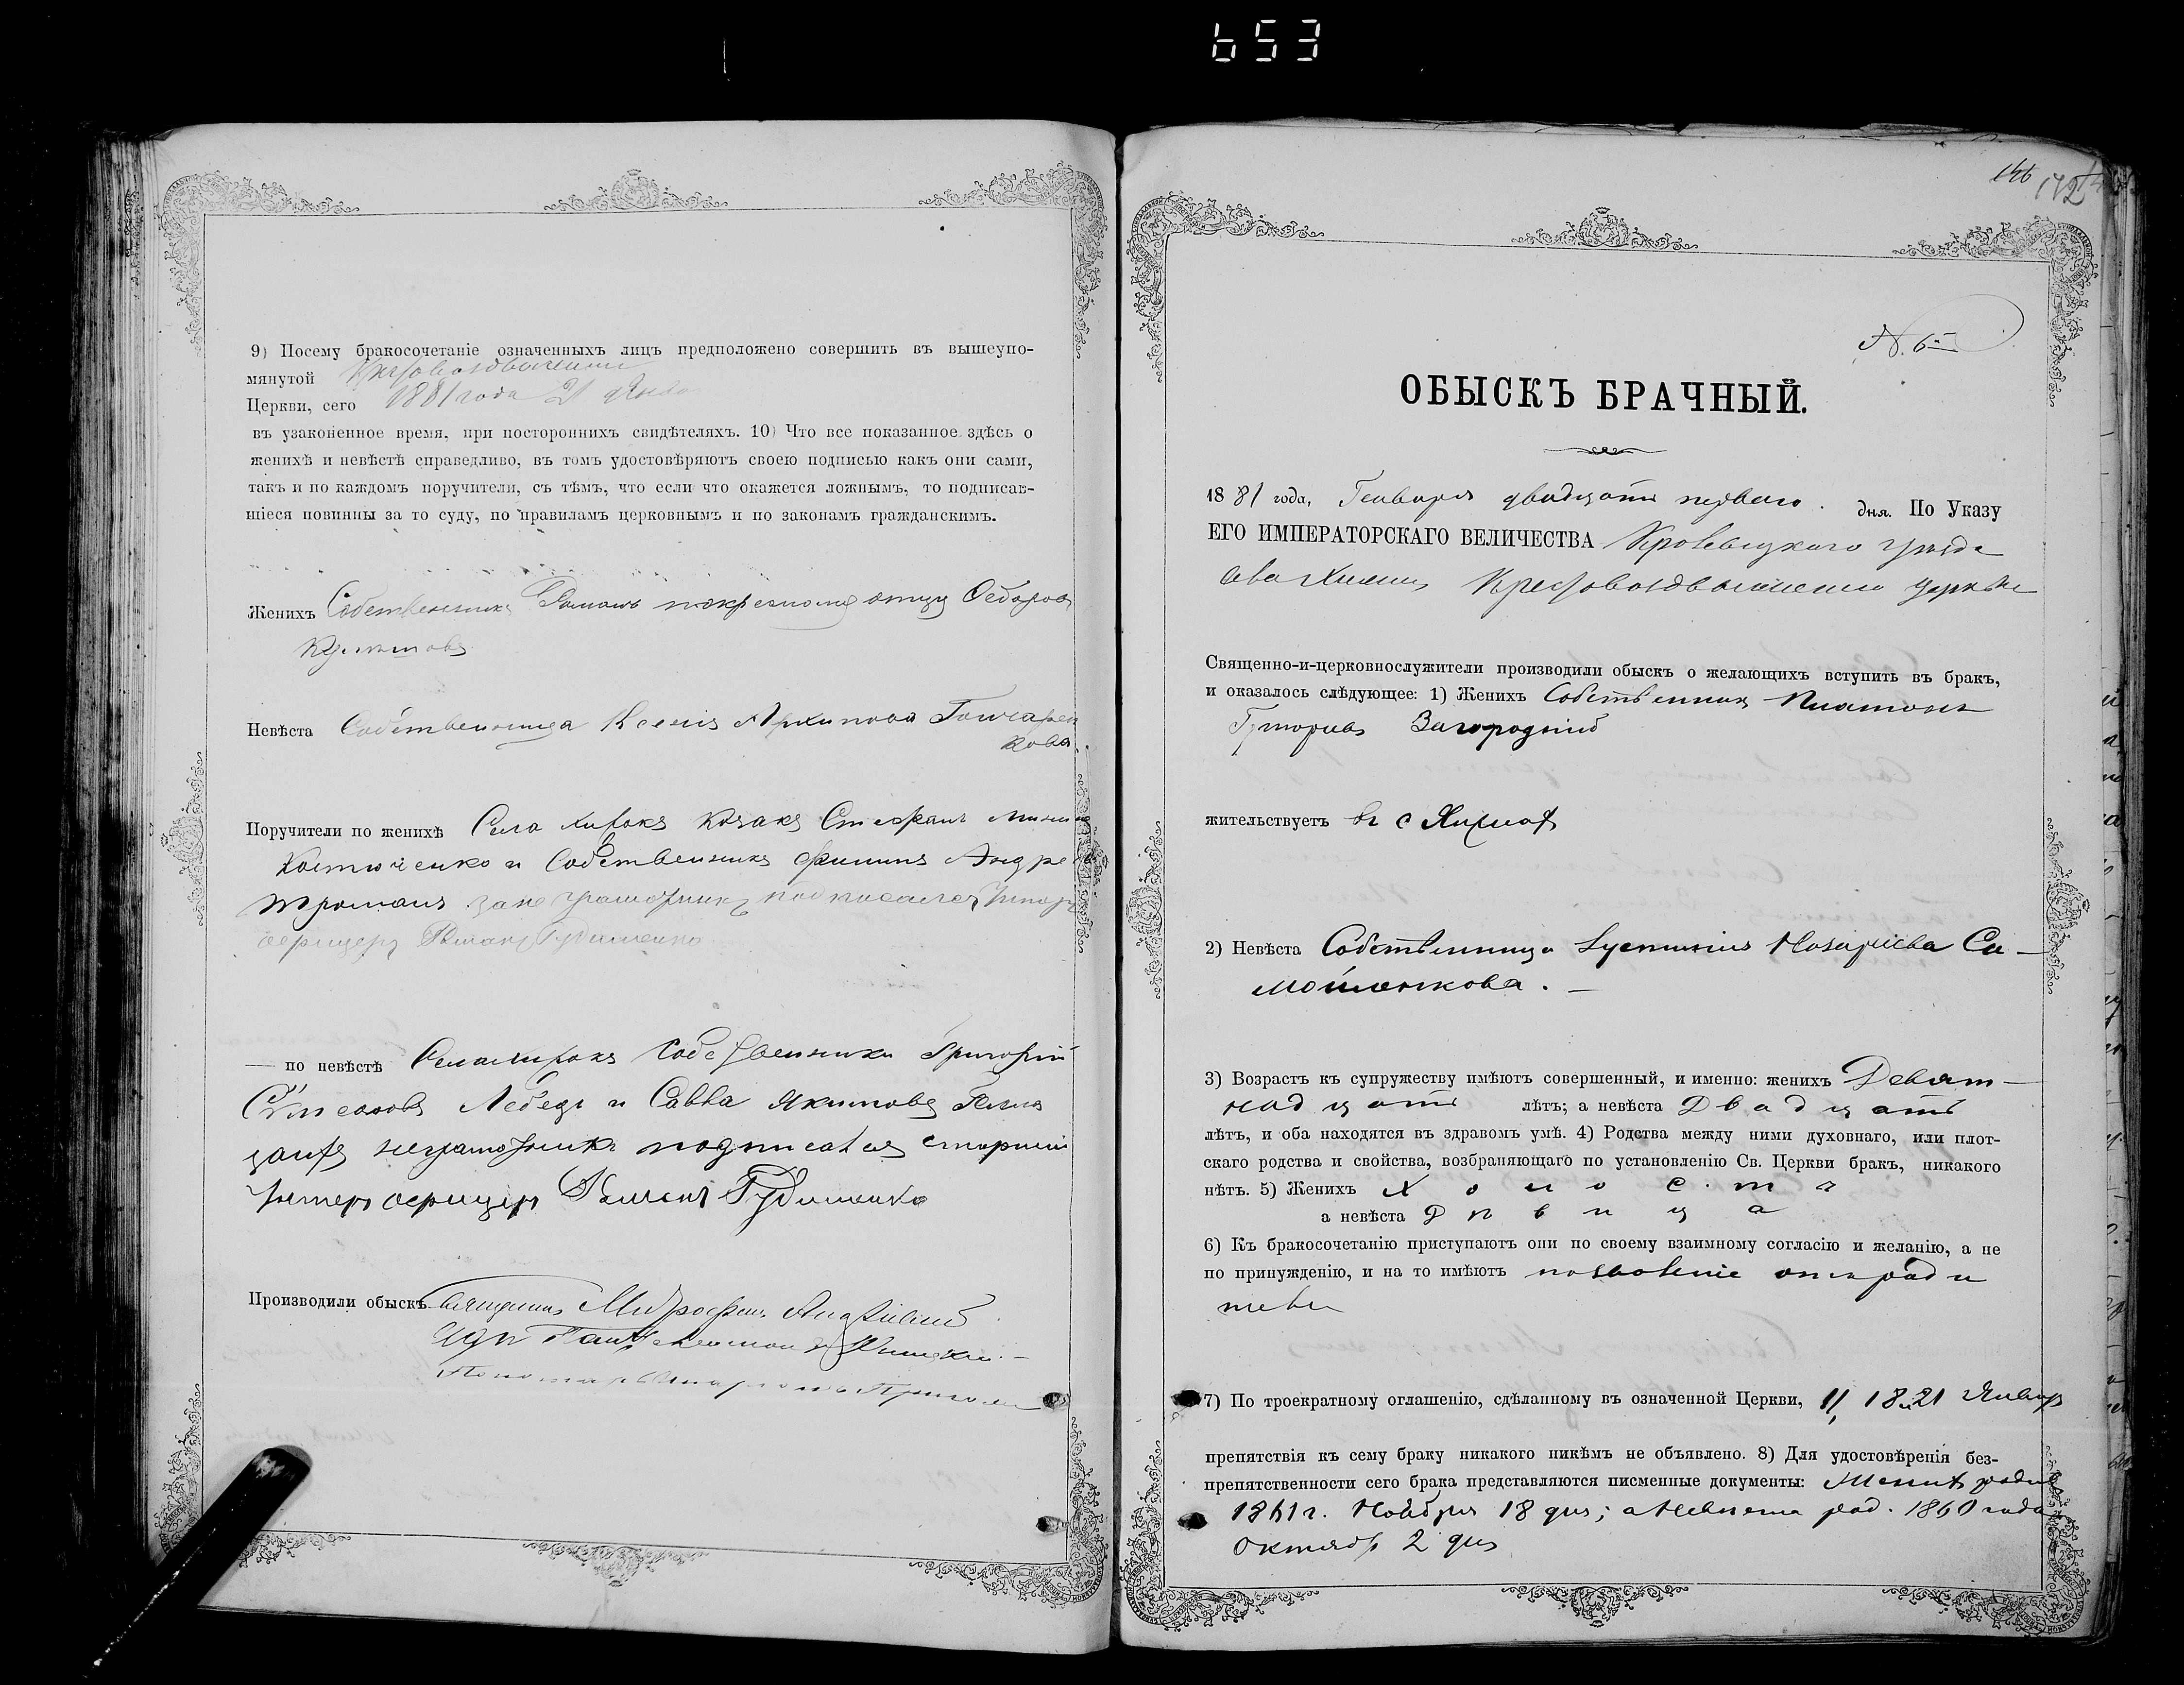 653
9) Посему бракосочетаніе означенныхъ лицъ предположено совершить въ вышеупо-
мянутой Крестовоздвиженской
Церкви, сего 1881 года 21 дня
въ узаконенное время, при постороннихъ свидѣтеляхъ. 10) Что все показанное здѣсь о
женихѣ и невѣстѣ справедливо, въ томъ удостовѣряютъ своею подписью какъ они сами,
такъ и по каждомъ поручители, съ тѣмъ, что если что окажется ложнымъ, то подписав-
шіеся повинны за то суду, по правиламъ церковнымъ и по законамъ гражданскимъ.
Женихъ Собственникъ Романъ по крестному отцу Федоровъ
Невѣста Собственница Ксенія Архипова Гончарен
кова.
Поручители по женихѣ Села козакъ Стефанъ
Костюченко и Собственникъ Филипъ Андреевъ
подписался Унтеръ
офицеръ Романъ
— по невѣстѣ Села Собственники Григорій
Стефановъ Лебедь и Савва Якимовъ
за неграмотныхъ подписался старшій
Унтеръ офицеръ Романъ
Производили обыскъ Священникъ Митрофанъ
Пономарь
146
172
N. 6-й
ОБЫСКЪ БРАЧНЫЙ.
1881 года, Генваря двадцать перваго. дня. По Указу
ЕГО ИМПЕРАТОРСКАГО ВЕЛИЧЕСТВА Кролевецкаго уѣзда
села Крестовоздвиженской церкви
Священно-и-церковнослужители производили обыскъ о желающихъ вступить въ бракъ,
и оказалось слѣдующее: 1) Женихъ Собственникъ Платонъ
Григорьевъ Загородній
жительствуетъ въ с.
2) Невѣста Собственница Іустинія Назаріева Са-
мойленкова. —
3) Возрастъ къ супружеству имѣютъ совершенный, и именно: женихъ Девят-
надцать лѣтъ; а невѣста Двадцать
лѣтъ, и оба находятся въ здравомъ умѣ. 4) Родства между ними духовнаго, или плот-
скаго родства и свойства, возбраняющаго по установленію Св. Церкви бракъ, никакого
нѣтъ. 5) Женихъ Холостъ
а невѣста Дѣвица
6) Къ бракосочетанію приступаютъ они по своему взаимному согласію и желанію, а не
по принужденію, и на то имѣютъ позволеніе отъ роди
телей
7) По троекратному оглашенію, сдѣланному въ означенной Церкви, 11, 18 и 21 Январ
препятствія къ сему браку никакого никѣмъ не объявлено. 8) Для удостовѣренія без-
препятственности сего брака представляются писменные документы: Женихъ родил
1861 г. Ноября 18 дня; а Невѣста род. 1860 года
октябр 2 дня